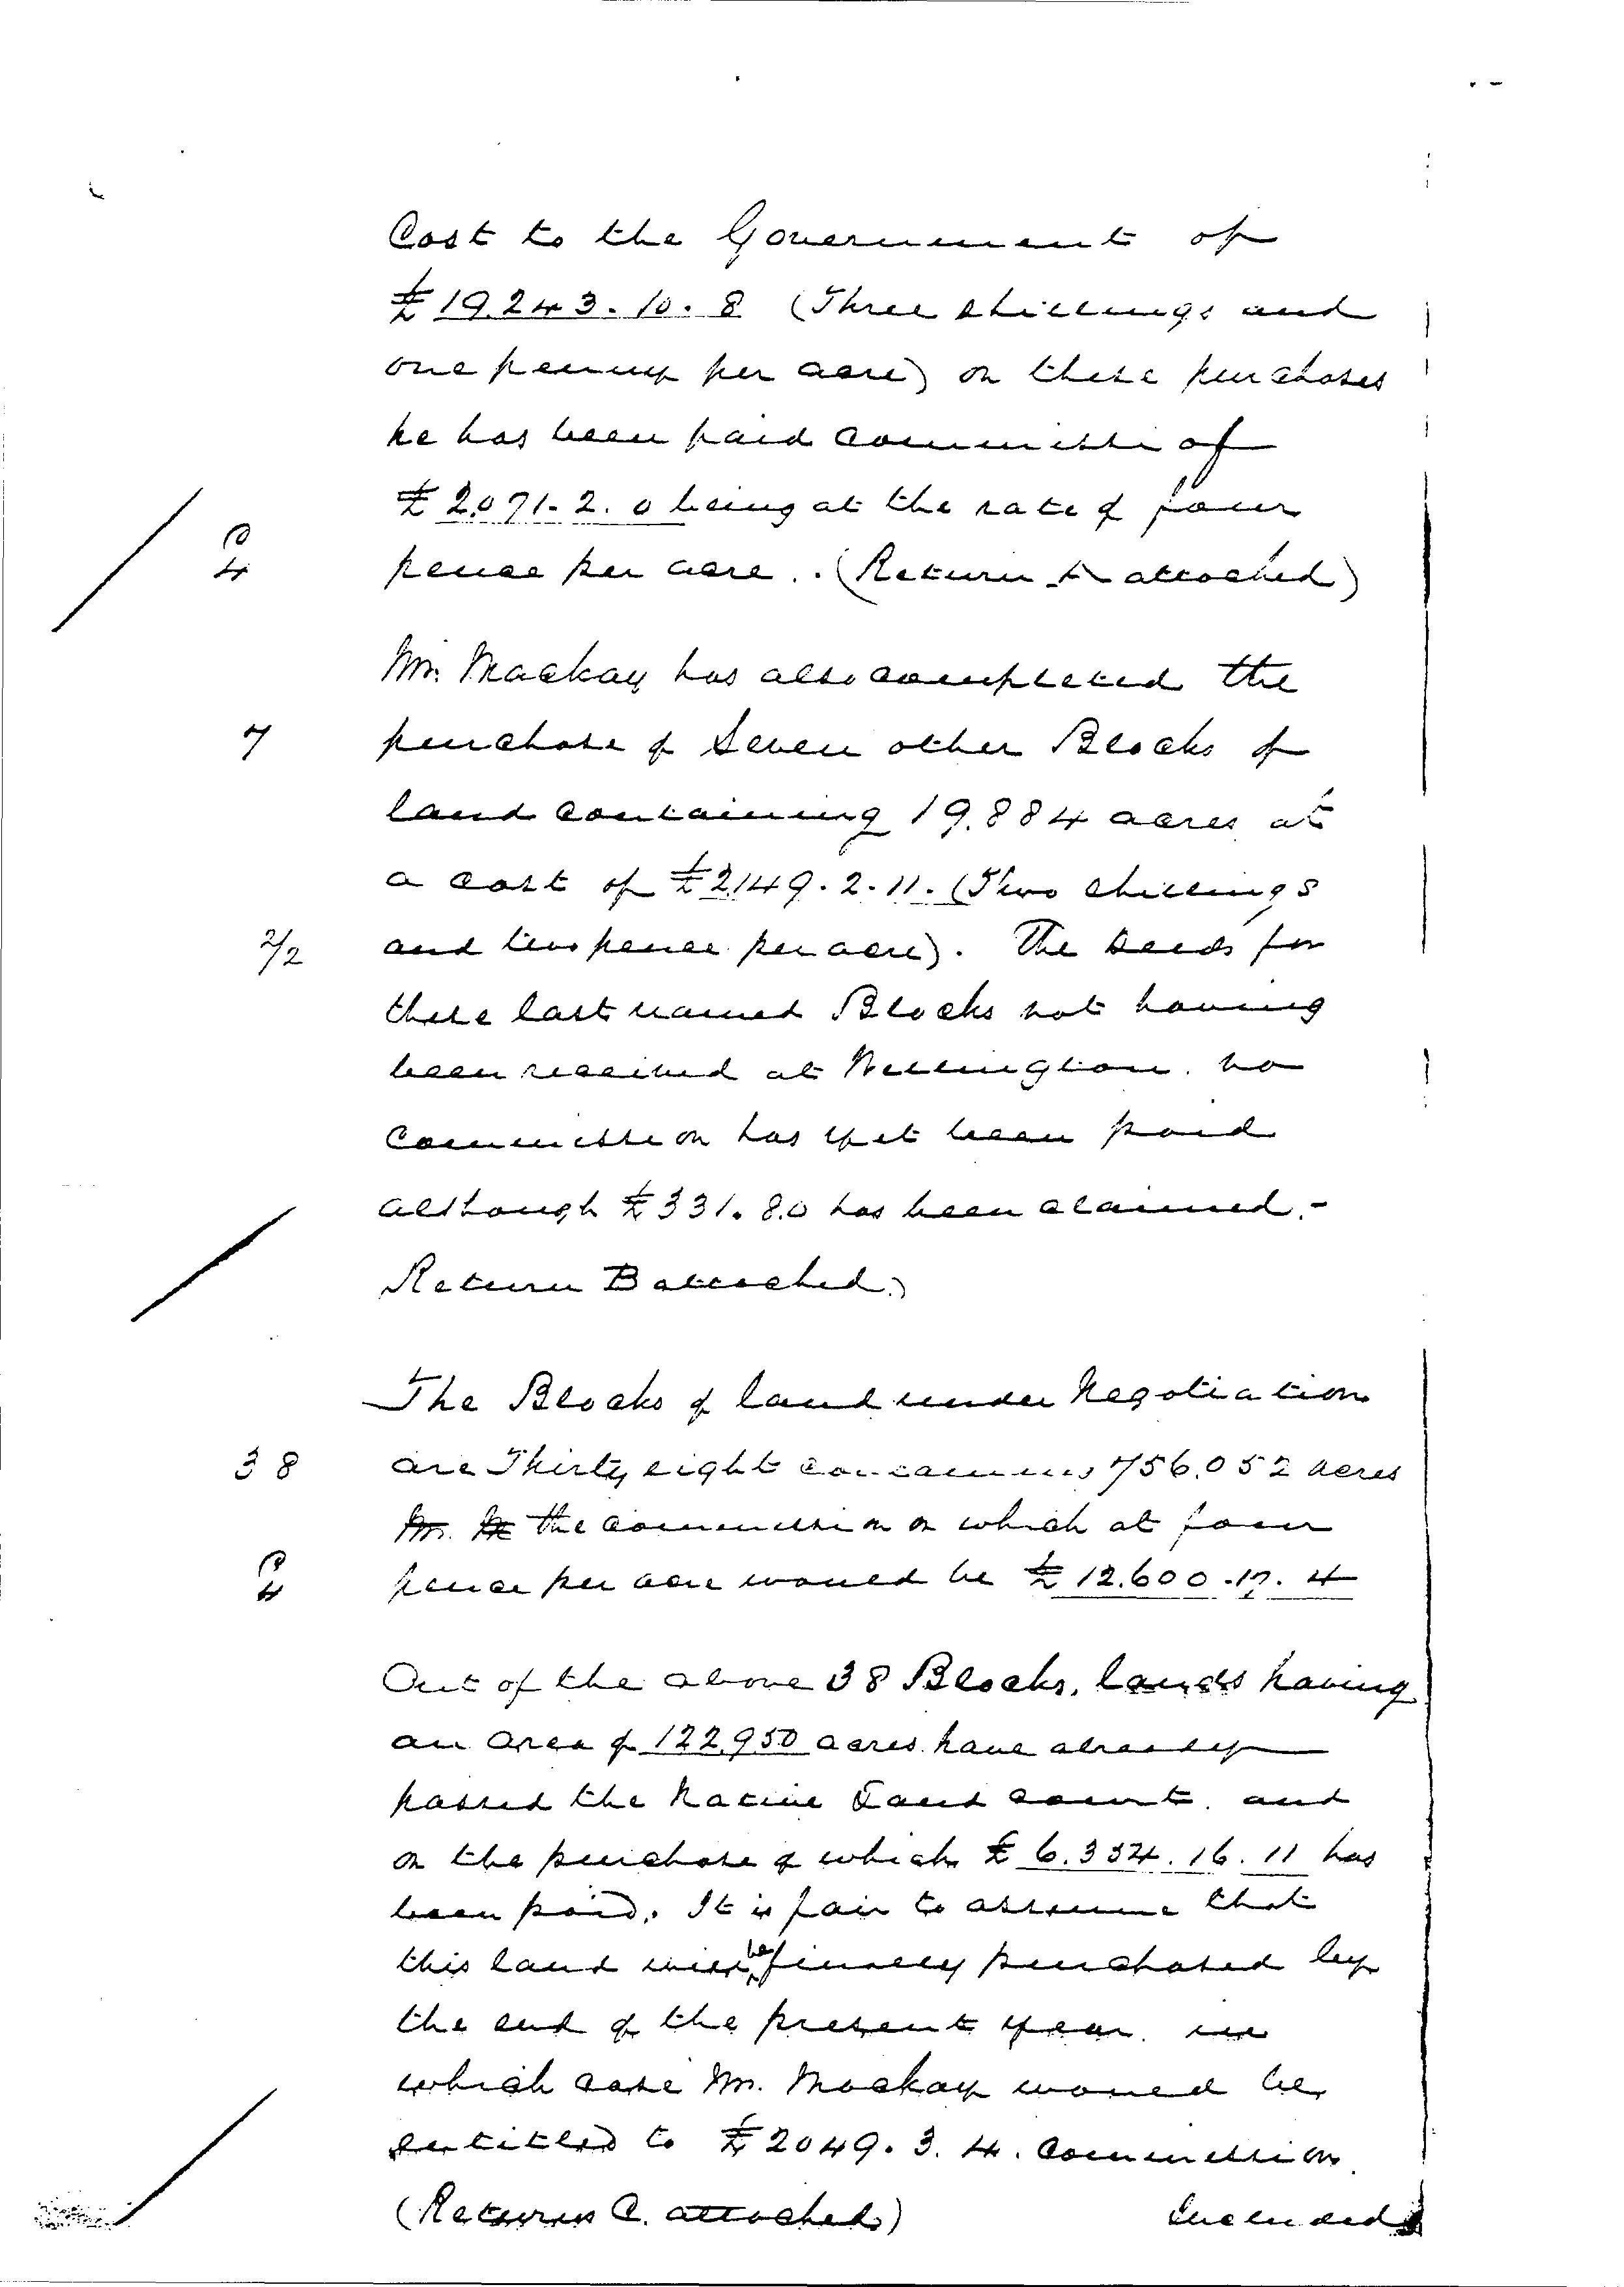 Cost to the Government of
£19.243.10.8 (Three shillings and
one penny per acre) on these purchases
he has been paid commission of
£2.071.2.0 being at the rate of four
P
4
pence per acre. (Return A attached)
Mr. Mackay has also completed the
7
purchase of Seven other Blocks of
land containing 19.884 acres at
a cost of £2,149.2.11. (Two shillings
2/2
and two pence per acre). The deeds for
these last named Blocks not having
been received at Wellington. no
Commission has yet been paid
although £331.8.0 has been claimed.-
Return B attached.)
The Blocks of land under Negotiation
38
are Thirty eight containing 756.052 acres
Mr. the commission on which at four
P
4
pence per acre would be £12.600.17.4
Out of the above 38 Blocks, lands having
an area of 122.950 acres have already
passed the Native Land Court. and
on the purchase of which £6.334.16.11 has
been paid. It is fair to assume that
this land will be finally purchased by
the end of the present year. in
which case Mr. Mackay would be
entitled to £2049.3.4. commission.
(Return C. attached)
Included